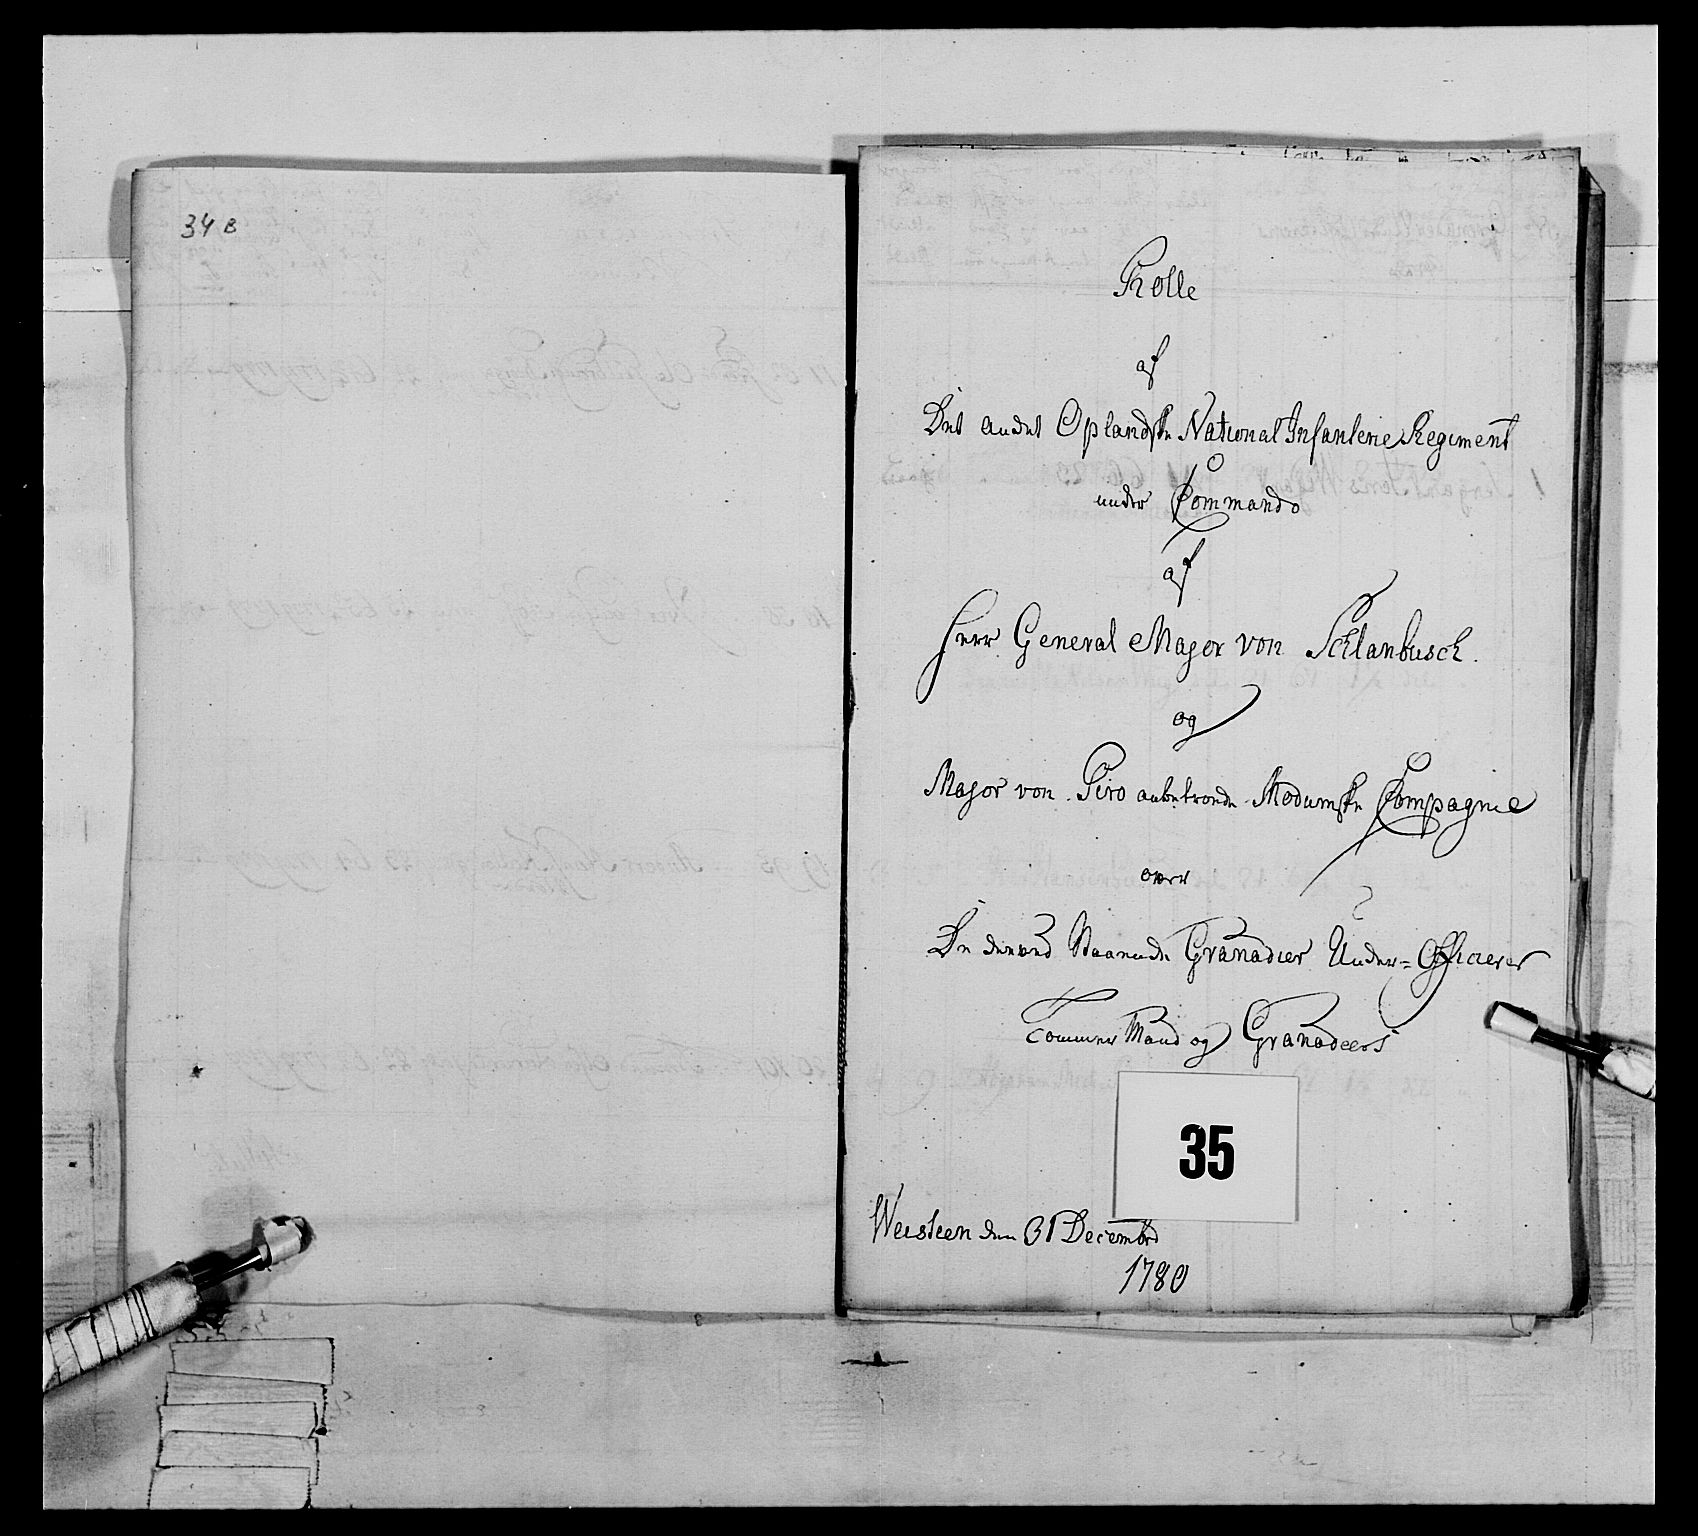 34 B
Rolle
af
Det andet Oplandske National Infanterie Regiment
under Commando
af
Herr General Major von Schlanbusch.
og
Major von Giro anbetroede Modumske Compagnie
over
De derved staaende Granadier Under=Officierer
Tommer Mænd og Granadeers
35
Weesteen den 31 Decembr
1780